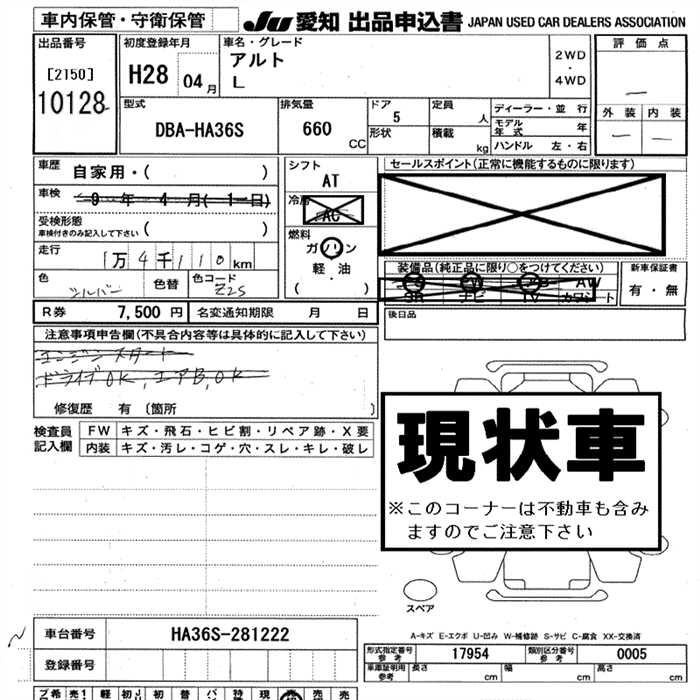 車内保管・守衛保管
JU 愛知 出品申込書 JAPAN USED CAR DEALERS ASSOCIATION
出品番号
[2150]
10128
初度登録年月
H28 04 月
車名・グレード
アルト
L
2WD
・
4WD
評価点
—
外装 内装
— —
型式
DBA-HA36S
排気量
660 CC
ドア
5
形状
定員
人
積載
kg
ディーラー・並行
モデル年式 年
ハンドル 左・右
車歴
自家用・( )
車検 9 年 4 月(1 日)
受検形態
車検付きのみ記入して下さい ( )
走行
1万4千110km
色
シルバー
色替
色コード
Z2S
シフト
AT
冷房
AC
燃料
ガソリン
軽・油
( )
セールスポイント(正常に機能するものに限ります)
装備品(純正品に限り○をつけてください)
AW
SR ナビ TV カワシート
新車保証書
有・無
後日品
R券 7,500 円 名変通知期限 月 日
注意事項申告欄(不具合内容等は具体的に記入して下さい)
エンジンスタート
ドライブOK, エアB,OK
修復歴 有〔箇所 〕
検査員記入欄
FW キズ・飛石・ヒビ割・リペア跡・X要
内装 キズ・汚レ・コゲ・穴・スレ・キレ・破レ
現状車
※このコーナーは不動車も含み
ますのでご注意下さい
スペア
A-キズ E-エクボ U-凹み W-補修跡 S-サビ C-腐食 XX-交換済
車台番号 HA36S-281222
登録番号
形式指定番号 参考 17954 類別区分番号 参考 0005
車庫証明用 参考 長さ cm 幅 cm 高さ cm